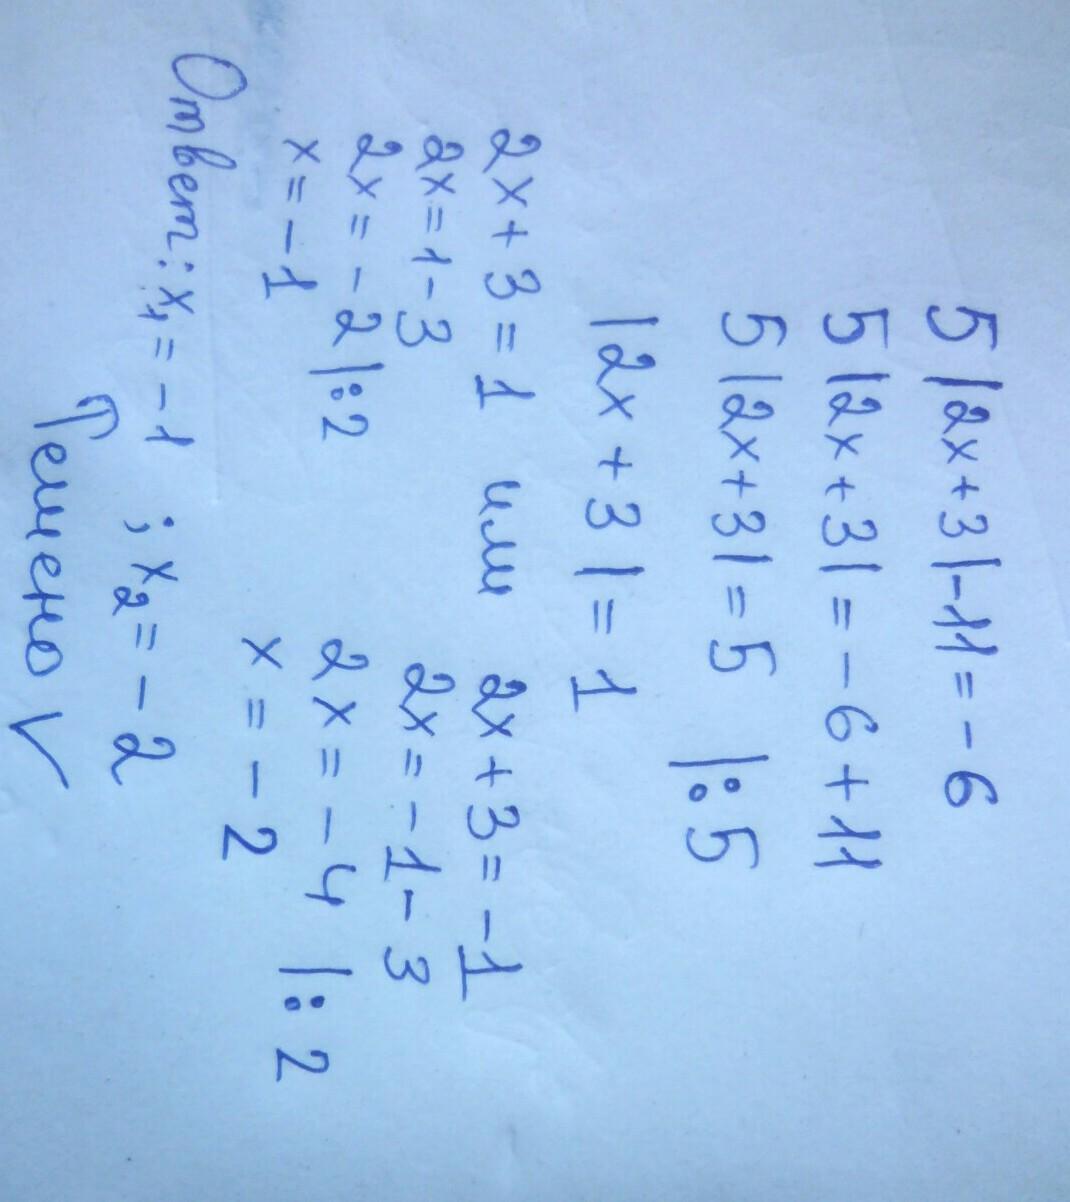 5|2x+3|-11=-6
5|2x+3|=-6+11
5|2x+3|=5 |:5
|2x+3|=1
2x+3=1 или 2x+3=-1
2x=1-3 2x=-1-3
2x=-2|:2 2x=-4 |:2
x=-1 x=-2
Ответ: x₁=-1 ; x₂=-2
Решено √